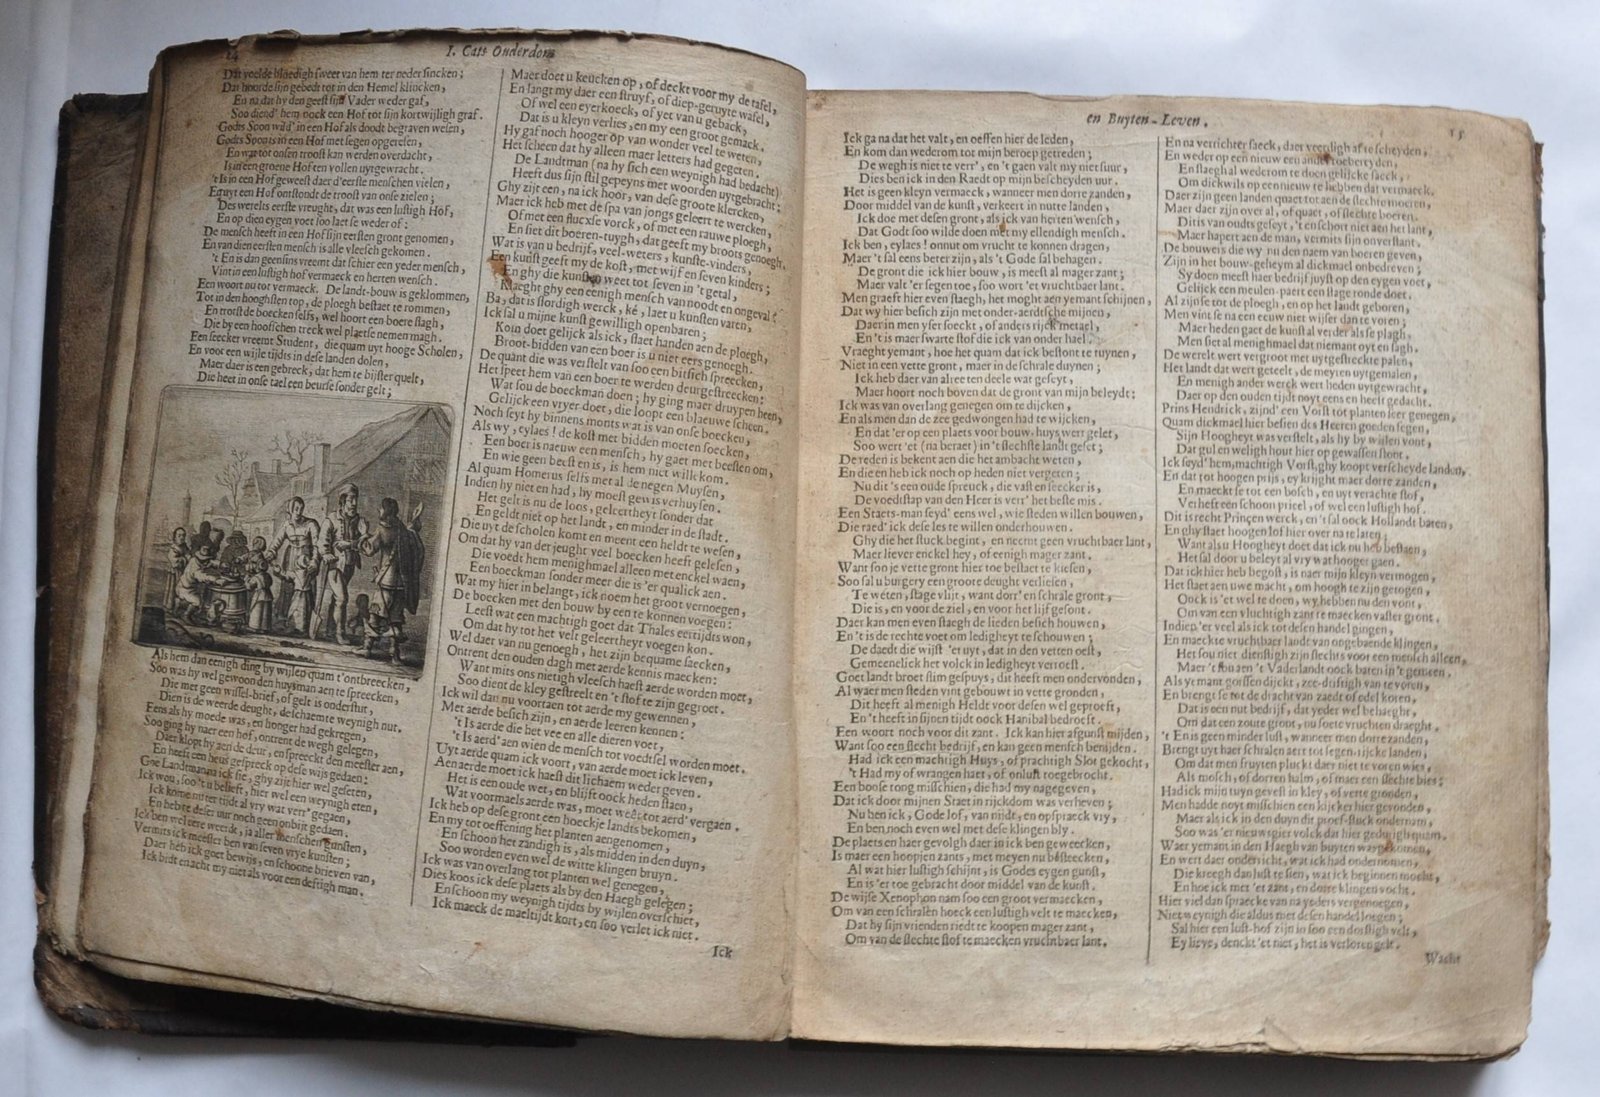 14
I. Cats Ouderdom
Dat voelde bloedigh sweet van hem ter neder sincken;
Dat hoorde sijn gebedt tot in den Hemel klincken,
En na dat hy den geest sijn Vader weder gaf,
Soo diend' hem oock een Hof tot sijn kortwijligh graf.
Godts Soon wild' in een Hof als doodt begraven wesen,
Godts Soon is in een Hof met segen opgeresen,
En wat tot onsen troost kan werden overdacht,
Is in een groene Hof ten vollen uytgewracht.
't Is in een Hof geweest daer d'eerste menschen vielen,
En uyt een Hof ontstondt de troost van onse zielen;
Des werelts eerste vreught, dat was een lustigh Hof,
En op dien eygen voet soo laet se weder of:
De mensch heeft in een Hof sijn eersten gront genomen,
En van dien eersten mensch is alle vleesch gekomen.
't En is dan geensins vreemt dat schier een yeder mensch,
Vint in een lustigh hof vermaeck en herten wensch.
Een woort nu tot vermaeck. De landt-bouw is geklommen,
Tot in den hooghsten top, de ploegh bestaet te rommen,
En troost de boecken selfs, wel hoort een boere slagh,
Die by een hoofschen treck wel plaetse nemen magh.
Een seecker vreemt Student, die quam uyt hooge Scholen,
En voor een wijle tijdts in dese landen dolen,
Maer daer is een gebreck, dat hem te bijster quelt,
Die heet in onse tael een beurse sonder gelt;
Als hem dan eenigh ding by wijlen quam t'ontbreecken,
Soo was hy wel gewoon den huysman aen te spreecken,
Die met geen wissel-brief, of gelt is onderstut,
Dien is de weerde deught, de schaemte weynigh nut.
Eens als hy moede was, en honger had gekregen,
Soo ging hy naer een hof, ontrent de wegh gelegen,
Daer klopt hy aen de deur, en spreeckt den meester aen,
En heeft een heus gespreck op dese wijs gedaen:
Goe Landtman na ick sie, ghy zijt hier wel geseten,
Ick wou, soo 't u belieft, hier wel een weynigh eten,
Ick kome uuter tijdt al vry wat verr' gegaen,
En heb te deser uur noch geen onbijt gedaen.
Ick ben wel eere weerde, ja aller menschen gunsten,
Vermits ick meester ben van seven vrye kunsten;
Daer heb ick goet bewijs, en schoone brieven van,
Ick bidt en acht my niet als voor een deftigh man.
Maer doet u keucken op, of deckt voor my de tafel,
En langt my daer een struyf, of diep-geruyte wafel,
Of wel een eyerkoeck, of yet van u geback,
Dat is u kleyn verlies, en my een groot gemack.
Hy gaf noch hooger op van wonder veel te weten,
Het scheen dat hy alleen maer letters had gegeten.
De Landtman (na hy sich een weynigh had bedacht)
Heeft dus sijn stil gepeyns met woorden uytgebracht;
Ghy zijt een, na ick hoor, van dese groote klercken,
Maer ick heb met de spa van jongs geleert te wercken,
Of met een flucxse vorck, of met een rauwe ploegh,
En siet dit boeren-tuygh, dat geeft my broots genoegh.
Wat is van u bedrijf, veel-weters, kunste-vinders,
Een kunst geeft my de kost, met wijf en seven kinders;
En ghy die kunsten weet tot seven in 't getal,
Maeght ghy een eenigh mensch van noodt en ongeval?
Ba, dat is slordigh werck, ké, laet u kunsten varen,
Ick sal u mijne kunst gewilligh openbaren;
Kom doet gelijck als ick, slaet handen aen de ploegh,
Broot-bidden van een boer is u niet eers genoegh.
De quant die was verstelt van soo een bitsich spreecken,
Het speet hem van een boer te werden deurgestreecken:
Wat sou de boeckman doen; hy ging maer druypen heen,
Gelijck een vryer doet, die loopt een blaeuwe scheen.
Noch seyt hy binnens monts wat is van onse boecken,
Als wy, eylaes! de kost met bidden moeten soecken,
Een boer is nauw een mensch, hy gaet met beesten om,
En wie geen beest en is, is hem niet willekom.
Al quam Homerus selfs met al de negen Muysen,
Indien hy niet en had, hy moest gewis verhuysen.
Het gelt is nu de loos, geleertheyt sonder dat
En geldt niet op het landt, en minder in de stadt.
Die uyt de scholen komt en meent een heldt te wesen,
Om dat hy van der jeught veel boecken heeft gelesen,
Die voedt hem menighmael alleen met enckel waen,
Een boeckman sonder meer die is 'er qualick aen.
Wat my hier in belangt, ick noem het groot vernoegen,
De boecken met den bouw by een te konnen voegen:
Leest wat een machtigh goet dat Thales eertijdts won,
Om dat hy tot het velt geleertheyt voegen kon.
Wel daer van nu genoegh, het zijn bequame saecken,
Ontrent den ouden dagh met aerde kennis maecken:
Want mits ons nietigh vleesch haest aerde worden moet,
Soo dient de kley gestreelt en 't stof te zijn gegroet.
Ick wil dan nu voortaen tot aerde my gewennen,
Met aerde besich zijn, en aerde leeren kennen:
't Is aerde die het vee en alle dieren voet,
't Is aerd' aen wien de mensch tot voedtsel worden moet.
Uyt aerde quam ick voort, van aerde moet ick leven,
Aen aerde moet ick haest dit lichaem weder geven.
Het is een oude wet, en blijft oock heden staen,
Wat voormaels aerde was, moet weêr tot aerd' vergaen.
Ick heb op dese gront een hoeckje landts bekomen,
En my tot oeffening het planten aengenomen,
En schoon het zandigh is, als midden in den duyn,
Soo worden even wel de witte klingen bruyn.
Ick was van overlang tot planten wel genegen,
Dies koos ick dese plaets als by den Haegh gelegen;
En schoon my weynigh tijdts by wijlen overschiet,
Ick maeck de maeltijdt kort, en soo verlet ick niet.
Ick
en Buyten-Leven.
15
Ick ga na dat het valt, en oeffen hier de leden,
En kom dan wederom tot mijn beroep getreden;
De wegh is niet te verr', en 't gaen valt my niet suur,
Dies ben ick in den Raedt op mijn bescheyden uur.
Het is geen kleyn vermaeck, wanneer men dorre zanden,
Door middel van de kunst, verkeert in nutte landen,
Ick doe met desen gront, als ick van herten wensch,
Dat Godt soo wilde doen met my ellendigh mensch.
Ick ben, eylaes! onnut om vrucht te konnen dragen,
Maer 't sal eens beter zijn, als 't Gode sal behagen.
De gront die ick hier bouw, is meest al mager zant;
Maer valt 'er segen toe, soo wort 'et vruchtbaer lant.
Men graeft hier even staegh, het moght aen yemant schijnen,
Dat wy hier besich zijn met onder-aerdtsche mijnen,
Daer in men yser soeckt, of anders rijck metael,
En 't is maer swarte stof die ick van onder hael.
Vraeght yemant, hoe het quam dat ick bestont te tuynen,
Niet in een vette gront, maer in de schrale duynen;
Ick heb daer van alree ten deele wat geseyt,
Maer hoort noch boven dat de gront van mijn beleydt:
Ick was van overlang genegen om te dijcken,
En als men dan de zee gedwongen had te wijcken,
En dat 'er op een plaets voor bouw-huys wert gelet,
Soo wert 'et (na beraet) in 't slechtste landt geset;
De reden is bekent aen die het ambacht weten,
En die en heb ick noch op heden niet vergeten;
Nu dit 's een oude spreuck, die vast en seecker is,
De voedtstap van den Heer is verr' het beste mis.
Een Staets-man seyd' eens wel, wie steden willen bouwen,
Die raed' ick dese les te willen onderhouwen.
Ghy die het stuck begint, en neemt geen vruchtbaer lant,
Maer liever enckel hey, of eenigh mager zant.
Want soo je vette gront hier toe bestaet te kiesen,
Soo sal u burgery een groote deught verliesen,
Te weten, stage vlijt, want dorr' en schrale gront,
Die is, en voor de ziel, en voor het lijf gesont.
Daer kan men even staegh de lieden besich houwen,
En 't is de rechte voet om ledigheyt te schouwen;
De daedt die wijst 'er uyt, dat in den vetten oest,
Gemeenelick het volck in ledigheyt verroest.
Goet landt broet slim gespuys, dit heeft men ondervonden,
Al waer men steden vint gebouwt in vette gronden,
Dit heeft al menigh Heldt voor desen wel geproeft,
En 't heeft in sijnen tijdt oock Hanibal bedroeft.
Een woort noch voor dit zant. Ick kan hier afgunst mijden,
Want soo een slecht bedrijf, en kan geen mensch benijden.
Had ick een machtigh Huys, of prachtigh Slot gekocht,
't Had my of wrangen haet, of onlust toegebrocht.
Een boose tong misschien, die had my nagegeven,
Dat ick door mijnen Staet in rijckdom was verheven;
Nu ben ick, Gode lof, van nijdt, en opspraeck vry,
En ben noch even wel met dese klingen bly.
De plaets en haer gevolgh daer in ick ben geweecken,
Is maer een hoopjen zants, met meyen nu besteecken,
Al wat hier lustigh schijnt, is Godes eygen gunst,
En is 'er toe gebracht door middel van de kunst.
De wijse Xenophon nam soo een groot vermaecken,
Om van een schralen hoeck een lustigh velt te maecken,
Dat hy sijn vrienden riedt te koopen mager zant,
Om van de slechte stof te maecken vruchtbaer lant.
En na verrichter saeck, daer veerdigh af te scheyden,
En weder op een nieuw een ander toebereyden,
En staegh al wederom te doen gelijcke saeck,
Om dickwils op een nieuw te hebben dat vermaeck.
Daer zijn geen landen quaet tot aen de slechte moeren,
Maer daer zijn over al, of quaet, of slechte boeren.
Dit is van oudts geseyt, 't en schort niet aen het lant,
Maer hapert aen de man, vermits sijn onverstant.
De bouwers die wy nu den naem van boeren geven,
Zijn in het bouw-geheym al dickmael onbedreven;
Sy doen meest haer bedrijf juyst op den eygen voet,
Gelijck een meulen-paert een stage ronde doet.
Al zijn se tot de ploegh, en op het landt geboren,
Men vint se na een eeuw niet wijser dan te voren;
Maer heden gaet de kunst al verder als se plagh,
Men siet al menighmael dat niemant oyt en sagh.
De werelt wert vergroot met uytgestreckte palen,
Het landt dat wert geteelt, de meyren uytgemalen,
En menigh ander werck wert heden uytgewracht,
Daer op den ouden tijdt noyt eens en heeft gedacht.
Prins Hendrick, zijnd' een Vorst tot planten seer genegen,
Quam dickmael hier besien des Heeren goeden segen,
Sijn Hoogheyt was verstelt, als hy by wijlen vont,
Dat gul en weligh hout hier op gewassen stont.
Ick seyd' hem, machtigh Vorst, ghy koopt verscheyde landen,
En dat tot hoogen prijs, ey krijght maer dorre zanden,
En maeckt se tot een bosch, en uyt verachte stof,
Verheft een schoon prieel, of wel een lustigh hof.
Dit is recht Princen werck, en 't sal oock Hollandt baten,
En ghy staet hoogen lof hier over na te laten;
Want als u Hoogheyt doet dat ick nu heb bestaen,
Het sal door u beleyt al vry wat hooger gaen.
Dat ick hier heb begost, is naer mijn kleyn vermogen,
Het staet aen uwe macht, om hoogh te zijn getogen,
Oock is 'et wel te doen, wy hebben nu den vont,
Om van een vluchtigh zant te maecken vaster gront.
Indien 'er veel als ick tot desen handel gingen,
En maeckte vruchtbaer landt van ongebaende klingen,
Het sou niet dienstigh zijn slechts voor een mensch alleen,
Maer 't sou aen 't Vaderlandt oock baten in 't gemeen.
Als yemant gorssen dijckt, zee-driftigh van te voren,
En brengt se tot de dracht van zaedt of edel koren,
Dat is een nut bedrijf, dat yeder wel behaeght,
Om dat een zoute groot, nu soete vruchten draeght.
't En is geen minder lust, wanneer men dorre zanden,
Brengt uyt haer schralen aert tot segen-rijcke landen,
Om dat men fruyten pluckt daer niet te voren wies,
Als mosch, of dorren halm, of maer een slechte bies;
Had ick mijn tuyn gevest in kley, of vette gronden,
Men hadde noyt misschien een kijcker hier gevonden,
Maer als ick in den duyn dit proef-stuck ondernam,
Soo was 'er nieuwsgier volck dat hier geduerigh quam.
Waer yemant in den Haegh van buyten was gekomen,
En wert daer onderricht, wat ick had ondernomen,
Die kreegh dan lust te sien, wat ick beginnen mocht,
En hoe ick met 'et zant, en dorre klingen vocht.
Hier viel dan spraecke van na yeders vergenoegen,
Niet weynigh die aldus met desen handel loegen;
Sal hier een lust-hof zijn in soo een dorstigh velt,
Ey lieve, denckt 'et niet, het is verloren gelt.
Wacht